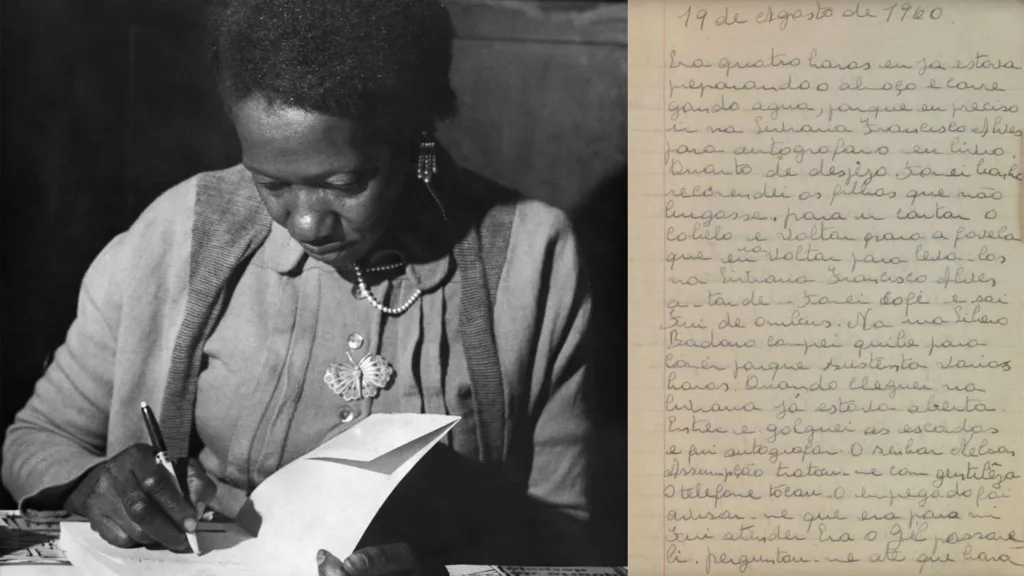 19 de Agosto de 1960.
Era quatro horas eu já estava
preparando o almoço e carre
gando agua, porque eu preciso
ir na Livraria Francisco Alves
para autógrafar o livro.
de
recomendei os filhos que não
brigasse. para ir cortar o
cabelo e voltar para a favela
que eu vou voltar para leva-los
na Livraria Francisco Alves
a tarde. Tomei café e sai
Fui de onibus. Na rua Libero
Badaro comprei quibe para
comer porque sustenta varias
horas. Quando cheguei na
livraria já estava aberta.
Entrei e galguei as escadas
e fui autografar. O senhor Nelson
Assumpção tratou-me com gentilêza
O telefone tocou. O empregado foi
avisar-me que era para mi
Fui atender Era o Gil passare-
li. perguntou-me até que hora